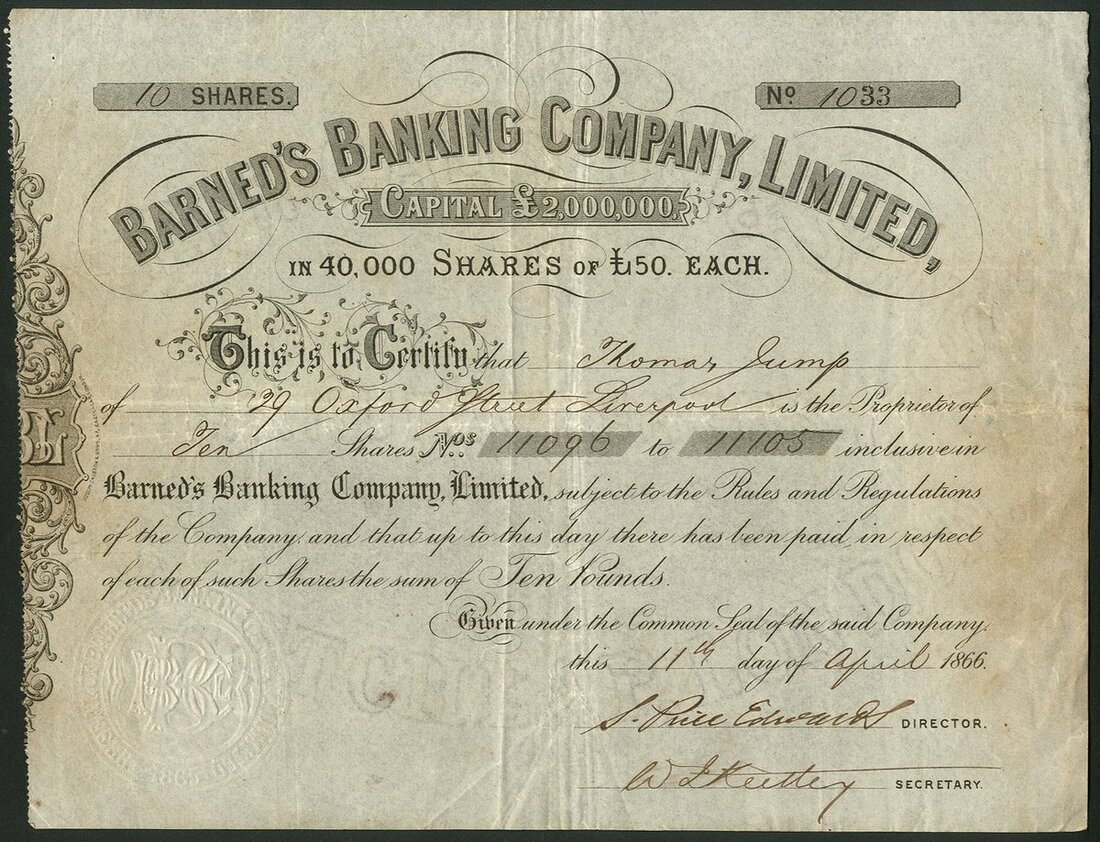 10 SHARES.
Nº 1033
BARNED'S BANKING COMPANY, LIMITED,
CAPITAL £2,000,000.
IN 40,000 SHARES OF £50. EACH.
This is to Certify that Thomas Jump
of 29 Oxford Street Liverpool is the Proprietor of
Ten Shares Nos 11096 to 11105 inclusive in
Barned's Banking Company, Limited, subject to the Rules and Regulations
of the Company and that up to this day there has been paid in respect
of each of such Shares the sum of Ten Pounds.
Given under the Common Seal of the said Company.
this 11th day of April 1866.
S. Price Edwards DIRECTOR.
SECRETARY.
1865